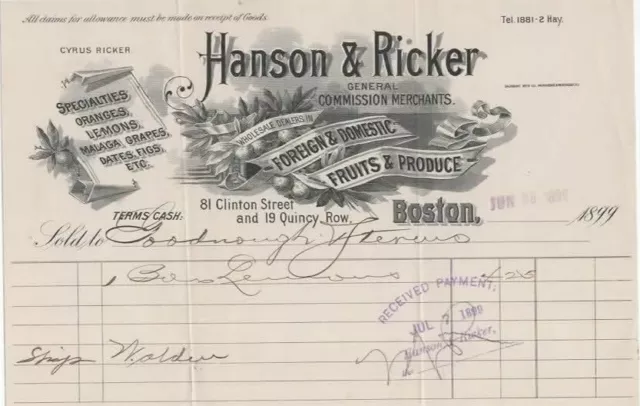 All claims for allowance must be made on receipt of Goods.
Tel. 1881-2 Hay.
CYRUS RICKER
Hanson & Ricker
GENERAL
COMMISSION MERCHANTS.
SPECIALTIES
ORANGES,
LEMONS,
MALAGA GRAPES,
DATES, FIGS,
ETC.
WHOLESALE DEALERS IN
FOREIGN & DOMESTIC
FRUITS & PRODUCE
81 Clinton Street
and 19 Quincy Row.
Boston,
JUN
1899
TERMS CASH:
Sold to Goodnough & Stevens
1 Box Lemons 4 25
RECEIVED PAYMENT,
JUL 1899
Hanson & Ricker.
Ship Walden